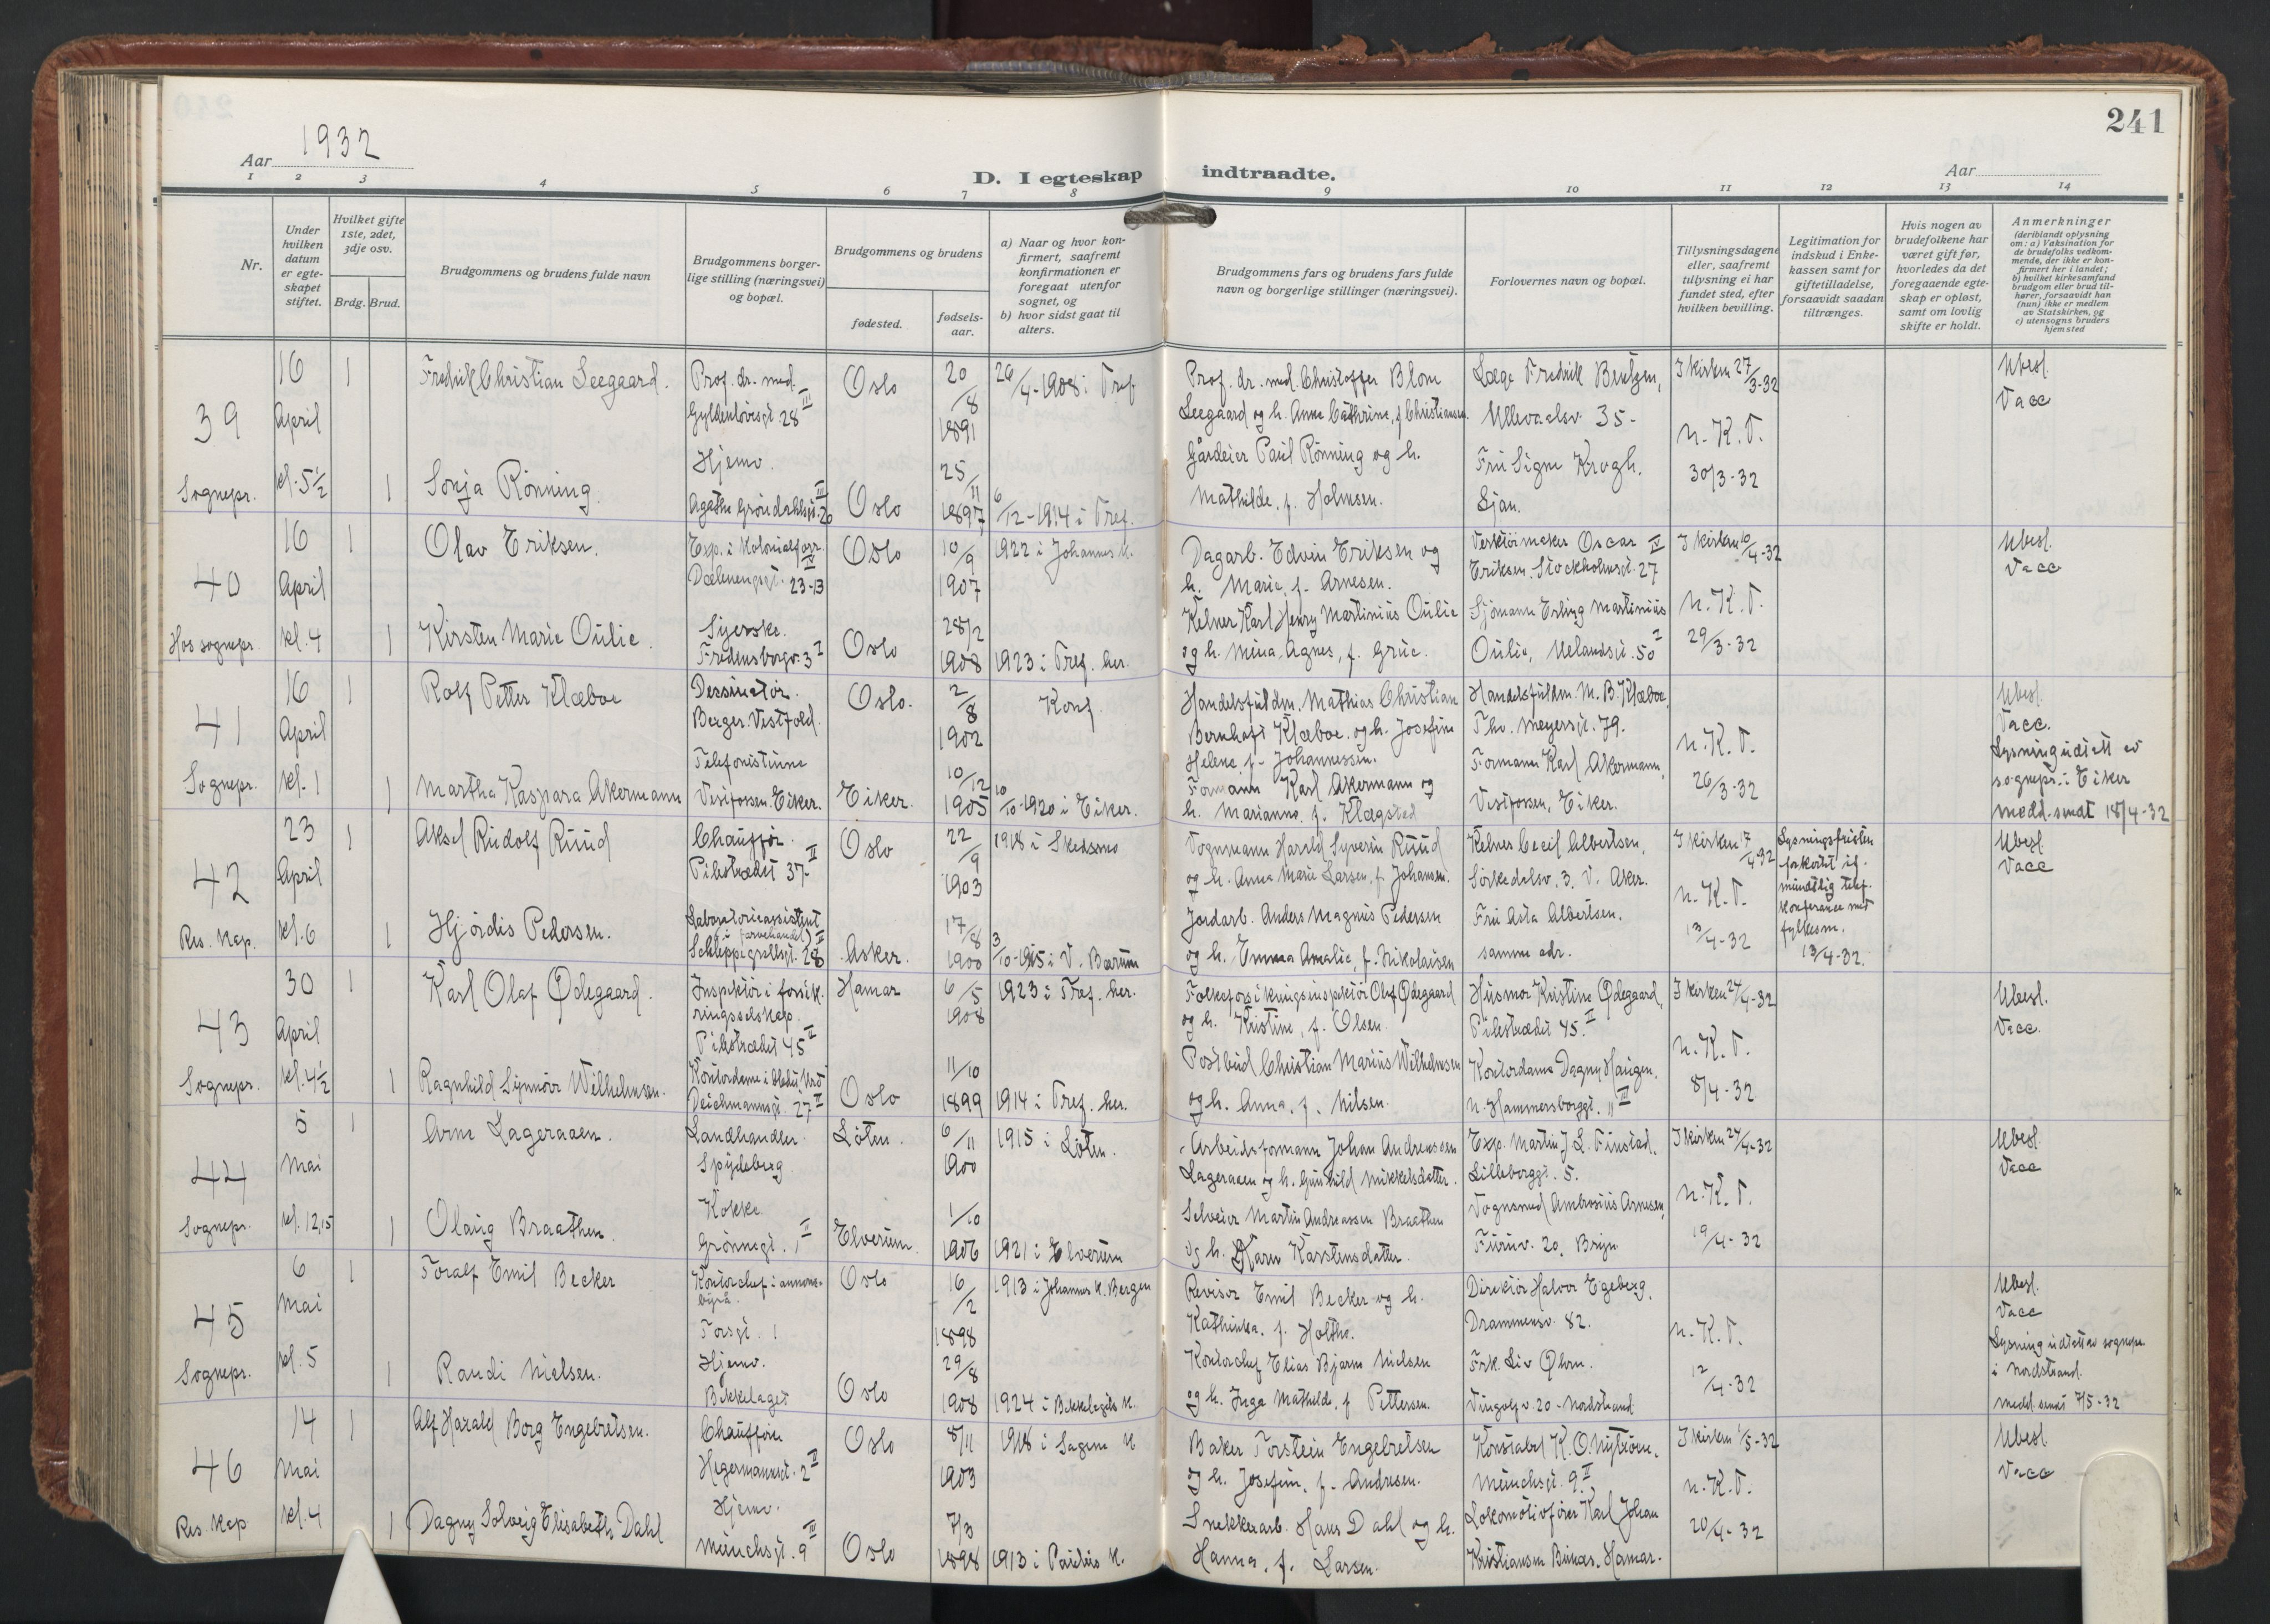 241
Aar 1932
D. I egteskap indtraadte.
Aar
1 2 3 4 5 6 7 8 9 10 11 12 13 14
Nr.
Under hvilken datum er egteskapet stiftet.
Hvilket gifte 1ste, 2det, 3dje osv.
Brdg. Brud.
Brudgommens og brudens fulde navn
Brudgommens borgerlige stilling (næringsvei) og bopæl.
Brudgommens og brudens
fødested.
fødselsaar.
a) Naar og hvor konfirmert, saafremt konfirmationen er foregaat utenfor sognet, og
b) hvor sidst gaat til alters.
Brudgommens fars og brudens fars fulde navn og borgerlige stillinger (næringsvei).
Forlovernes navn og bopæl.
Tillysningsdagene eller, saafremt tillysning ei har fundet sted, efter hvilken bevilling.
Legitimation for indskud i Enkekassen samt for giftetilladelse, forsaavidt saadan tiltrænges.
Hvis nogen av brudefolkene har været gift før, hvorledes da det foregaaende egteskap er opløst, samt om lovlig skifte er holdt.
Anmerkninger
(deriblandt oplysning om: a) Vaksination for de brudefolks vedkommende, der ikke er konfirmert her i landet; b) hvilket kirkesamfund brudgom eller brud tilhører, forsaavidt han (hun) ikke er medlem av Statskirken, og c) utensogns bruders hjemsted
39 Sognepr.
16 April kl. 5½
1 Fredrik Christian Leegaard.
Prof. dr. med. Gyldenløvesgt. 28 III
Oslo
20/8 1891
26/4-1908 i Tref.
Prof. dr. med. Christoffer Blom
Leegaard og h. Anna Cathrine, f. Christiansen.
Læge Fredrik Bentzen, Ullevaalsv. 35-
I kirken 27/3-32
n. K. T. 30/3-32
Ubesl. Vacc
1 Sonja Rønning.
Hjemv. Agathe Grøndahlsgt. 26 III
Oslo
25/11 1897
6/12-1914 i Tref.
Gårdeier Paul Rønning og h.
Mathilde, f. Holmsen.
Fru Signe Krogh. Ljan.
40 Hos sognepr.
16 April kl. 4
1 Olav Eriksen.
Exp. i Kolonialforr. Dælenenggt. 23-13 IV
Oslo
10/9 1907
1922 i Johannes k.
Dagarb. Edvin Eriksen og
h. Marie, f. Arnesen.
Verktøimaker Oscar Eriksen. Stockholmsgt. 27 IV
I kirken 10/4-32
n. K. T. 29/3-32
Ubesl. Vacc
1 Kirsten Marie Oulie.
Syerske. Fredensborgv. 3 I
Oslo
28/2 1908
1923 i Tref. her.
Kelner Karl Henry Martinius Oulie
og h. Mina Agnes, f. Grue.
Sjømann Erling Martinius Oulie, Uelandsgt. 50 I
41 Sognepr.
16 April kl. 1
1 Rolf Petter Klæboe
Dessinatør. Berger. Vestfold.
Oslo.
2/8 1902
Konf.
Handelsfuldm. Mathias Christian
Bernhoft Klæboe. og h. Josefine
Helene, f. Johannessen.
Handelsfuldm. M. B. Klæboe, Thv. Meyersgt. 79.
n. K. T. 26/3-32
Ubesl. Vacc.
Lysning utstett av
sognepr. i Eiker
medd. sendt 18/4-32
1 Martha Kaspara Akermann
Telefonistinne Vestfossen. Eiker.
Eiker.
10/12 1905
10/10-1920 i Eiker.
Formann Karl Akermann og
h. Marianne, f. Klægstad
Formann Karl Akermann, Vestfossen, Eiker.
42 Res. Kap.
23 April kl. 6
1 Aksel Rudolf Ruud
Chauffør. Pilestrædet 37 II
Oslo
22/9 1903
1918 i Skedsmo
Vognmann Harald Syverin Ruud
og h. Anna Marie Larsen, f. Johansen.
Kelner Cecil Albertsen, Sørkedalsv. 3. V. Aker.
I kirken 17/4-32
n. K. T. 13/4-32
Lysningsfristen
forkortet if.
mundtlig telef.
konferance med
fylkesm.
13/4-32.
Ubesl. Vacc
1 Hjørdis Pedersen.
Laboratorieassistent (i farvehandel) Schleppegrellsgt. 28 II
Asker.
17/8 1900
3/10-1915 i V. Bærum
Jordarb. Anders Magnus Pedersen
og h. Emma Amalie, f. Nikolaisen
Fru Asta Albertsen. samme adr.
43 Sognepr.
30 April kl. 4½
1 Karl Olaf Ødegaard.
Inspektør i forsikringsselskap. Pilestrædet 45 II
Hamar
6/5 1908
1923 i Tref. her.
Folkeforsikringsinspektør Olaf Ødegaard
og h. Kristine, f. Olsen.
Husmor Kristine Ødegaard, Pilestrædet 45. II
I kirken 24/4-32
n. K. T. 8/4-32
Ubesl. Vacc.
1 Ragnhild Synnøve Wilhelmsen.
Deichmannsgt. 27 II
Oslo
11/10 1899
1914 i Tref. her.
Postbud Christian Marius Wilhelmsen
og h. Anna, f. Nilsen.
Kontordame Dagny Haugen. n. Hammersborggt. 11 III
44 Sognepr.
5 Mai kl. 12,15
1 Arne Lageraaen.
Landhandler. Spydeberg
Løten.
6/11 1900
1915 i Løten.
Arbeidsformann Johan Andreassen
Lageraaen og h. Gunhild Mikkelsdatter.
Exp. Martin J. L. Finstad. Lilleborggt. 5.
I kirken 24/4-32
n. K. T. 19/4-32
Ubesl. Vacc
1 Olaug Braathen.
Kokke. Grønnegt. 1 II
Elverum.
1/10 1906
1921 i Elverum
Selveier Martin Andreassen Braathen
og h. Karen Karstensdatter.
Vognsmed Ambrosius Arnesen, Furuv. 20. Bryn
45 Sognepr.
6 Mai kl. 5
1 Toralf Emil Becker
Kontorchef i annonsebyrå. Torsgt. 1
Oslo
16/2 1898
1913 i Johannes K. Bergen
Revisor Emil Becker og h.
Kathinka, f. Holthe.
Direktør Halvor Egeberg, Drammensv. 82.
n. K. T. 12/4-32
Ubesl. Vacc
Lysning utstett av sognepr.
i Nordstrand.
medd. sendt 7/5-32
1 Randi Nielsen.
Hjemv. Bekkelaget
Oslo
29/8 1908
1924 i Bekkelagets K.
Kontorchef Elias Bjarne Nielsen
og h. Inga Mathilde, f. Pettersen.
Frk. Liv Øhrn. Vingolfv. 20 - Nordstrand
46 Res. Kap
14 Mai kl. 4
1 Alf Harald Borg Engebretsen.
Chauffør Hegermannsgt. 2 II
Oslo
8/11 1903
1918 i Sagene K
Baker Torstein Engebretsen
og h. Josefine, f. Andresen.
Konstabel K. O. Nystrøm. Münchsgt. 9. II
I kirken 1/5-32
n. K. T. 20/4-32
Ubesl. Vacc
1 Dagny Solveig Elisabeth Dahl
Hjemv. Münchsgt. 9 III
Oslo
7/3 1898
1913 i Paulus K.
Snekkerarb. Hans Dahl og h.
Hanna, f. Larsen.
Lokomotivfører Karl Johan Kristiansen Hamar.